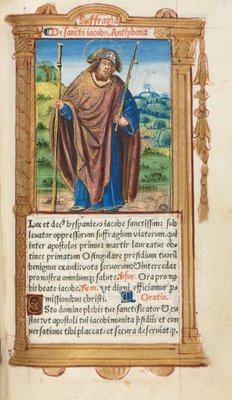 Suffragia
De sancto iacobo. Antiphona
Lux et dec⁹ hyspanie: iacobe sanctissime sub
leuator oppressorum suffragium viatorum. qui
inter apostolos primus martir laureatus ob
tines primatum O singulare presidium tuorũ
benignus exaudi vota seruorum: Interce da
pro nostra omnium salute. Vsus. Ora pro no
bis beate iacobe. Rem. vt digni efficiamur p
missionibus christi. Oratio.
Esto domine plebis tue sanctificator & cu
stos: vt apostoli tui iacobi munita presidiis et con
uersatione tibi placeat: et secura deseruiat. p.